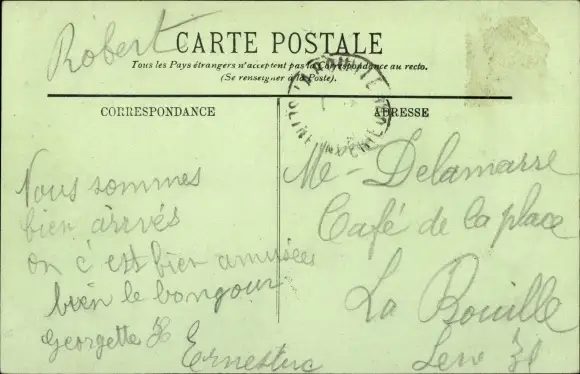 Robert
CARTE POSTALE
Tous les Pays étrangers n'acceptent pas la Correspondance au recto.
(Se renseigner à la Poste).
CORRESPONDANCE
ADRESSE
Nous sommes
bien arrivés
on c'est bien amusées
bien le bongour
Georgette &
Ernestine
Me - Delamarre
Café de la place
La Bouille